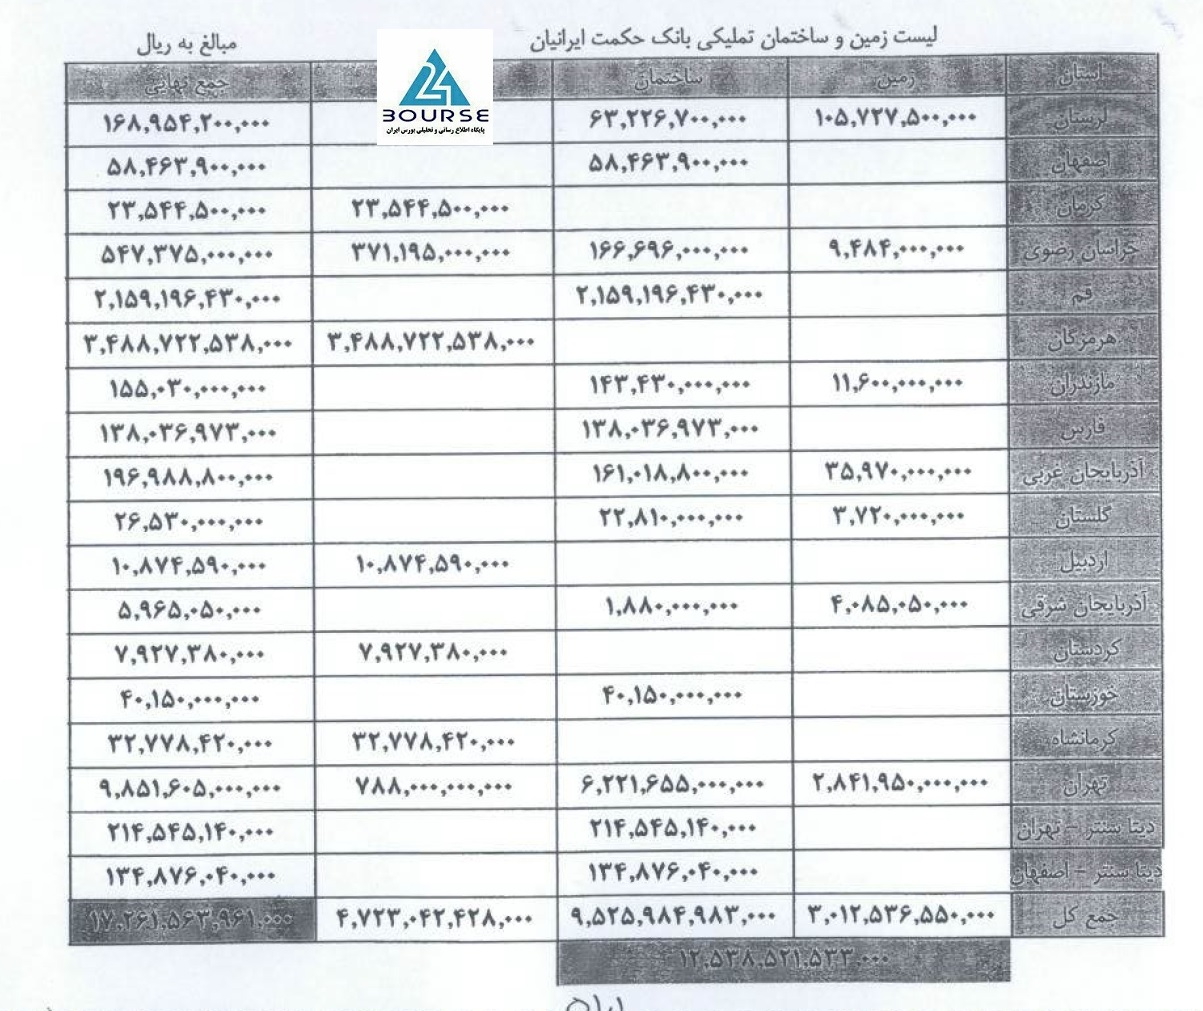 لیست زمین و ساختمان تملیکی بانک حکمت ایرانیان
مبالغ به ریال
استان زمین ساختمان جمع نهایی
24 BOURSE
پایگاه اطلاع رسانی و تحلیلی بورس ایران
لرستان ۱۰۵,۷۲۷,۵۰۰,۰۰۰ ۶۳,۲۲۶,۷۰۰,۰۰۰ ۱۶۸,۹۵۴,۲۰۰,۰۰۰
اصفهان ۵۸,۴۶۳,۹۰۰,۰۰۰ ۵۸,۴۶۳,۹۰۰,۰۰۰
کرمان ۲۳,۵۴۴,۵۰۰,۰۰۰ ۲۳,۵۴۴,۵۰۰,۰۰۰
خراسان رضوی ۹,۴۸۴,۰۰۰,۰۰۰ ۱۶۶,۶۹۶,۰۰۰,۰۰۰ ۳۷۱,۱۹۵,۰۰۰,۰۰۰ ۵۴۷,۳۷۵,۰۰۰,۰۰۰
قم ۲,۱۵۹,۱۹۶,۴۳۰,۰۰۰ ۲,۱۵۹,۱۹۶,۴۳۰,۰۰۰
هرمزگان ۳,۴۸۸,۷۲۲,۵۳۸,۰۰۰ ۳,۴۸۸,۷۲۲,۵۳۸,۰۰۰
مازندران ۱۱,۶۰۰,۰۰۰,۰۰۰ ۱۴۳,۴۳۰,۰۰۰,۰۰۰ ۱۵۵,۰۳۰,۰۰۰,۰۰۰
فارس ۱۳۸,۰۳۶,۹۷۳,۰۰۰ ۱۳۸,۰۳۶,۹۷۳,۰۰۰
آذربایجان غربی ۳۵,۹۷۰,۰۰۰,۰۰۰ ۱۶۱,۰۱۸,۸۰۰,۰۰۰ ۱۹۶,۹۸۸,۸۰۰,۰۰۰
گلستان ۳,۷۲۰,۰۰۰,۰۰۰ ۲۲,۸۱۰,۰۰۰,۰۰۰ ۲۶,۵۳۰,۰۰۰,۰۰۰
اردبیل ۱۰,۸۷۴,۵۹۰,۰۰۰ ۱۰,۸۷۴,۵۹۰,۰۰۰
آذربایجان شرقی ۴,۰۸۵,۰۵۰,۰۰۰ ۱,۸۸۰,۰۰۰,۰۰۰ ۵,۹۶۵,۰۵۰,۰۰۰
کردستان ۷,۹۲۷,۳۸۰,۰۰۰ ۷,۹۲۷,۳۸۰,۰۰۰
خوزستان ۴۰,۱۵۰,۰۰۰,۰۰۰ ۴۰,۱۵۰,۰۰۰,۰۰۰
کرمانشاه ۳۲,۷۷۸,۴۲۰,۰۰۰ ۳۲,۷۷۸,۴۲۰,۰۰۰
تهران ۲,۸۴۱,۹۵۰,۰۰۰,۰۰۰ ۶,۲۲۱,۶۵۵,۰۰۰,۰۰۰ ۷۸۸,۰۰۰,۰۰۰,۰۰۰ ۹,۸۵۱,۶۰۵,۰۰۰,۰۰۰
دیتا سنتر - تهران ۲۱۴,۵۴۵,۱۴۰,۰۰۰ ۲۱۴,۵۴۵,۱۴۰,۰۰۰
دیتا سنتر - اصفهان ۱۳۴,۸۷۶,۰۴۰,۰۰۰ ۱۳۴,۸۷۶,۰۴۰,۰۰۰
جمع کل ۳,۰۱۲,۵۳۶,۵۵۰,۰۰۰ ۹,۵۲۵,۹۸۴,۹۸۳,۰۰۰ ۴,۷۲۳,۰۴۲,۴۲۸,۰۰۰ ۱۷,۲۶۱,۵۶۳,۹۶۱,۰۰۰
۱۲,۵۳۸,۵۲۱,۵۳۳,۰۰۰